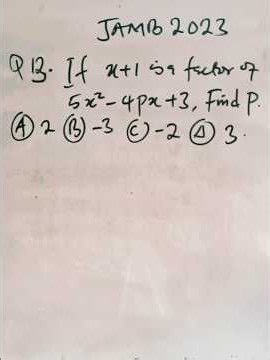 JAMB 2023
Q 13. If x+1 is a factor of
5x²-4px+3, Find P.
Ⓐ 2 Ⓑ -3 Ⓒ -2 Ⓓ 3.